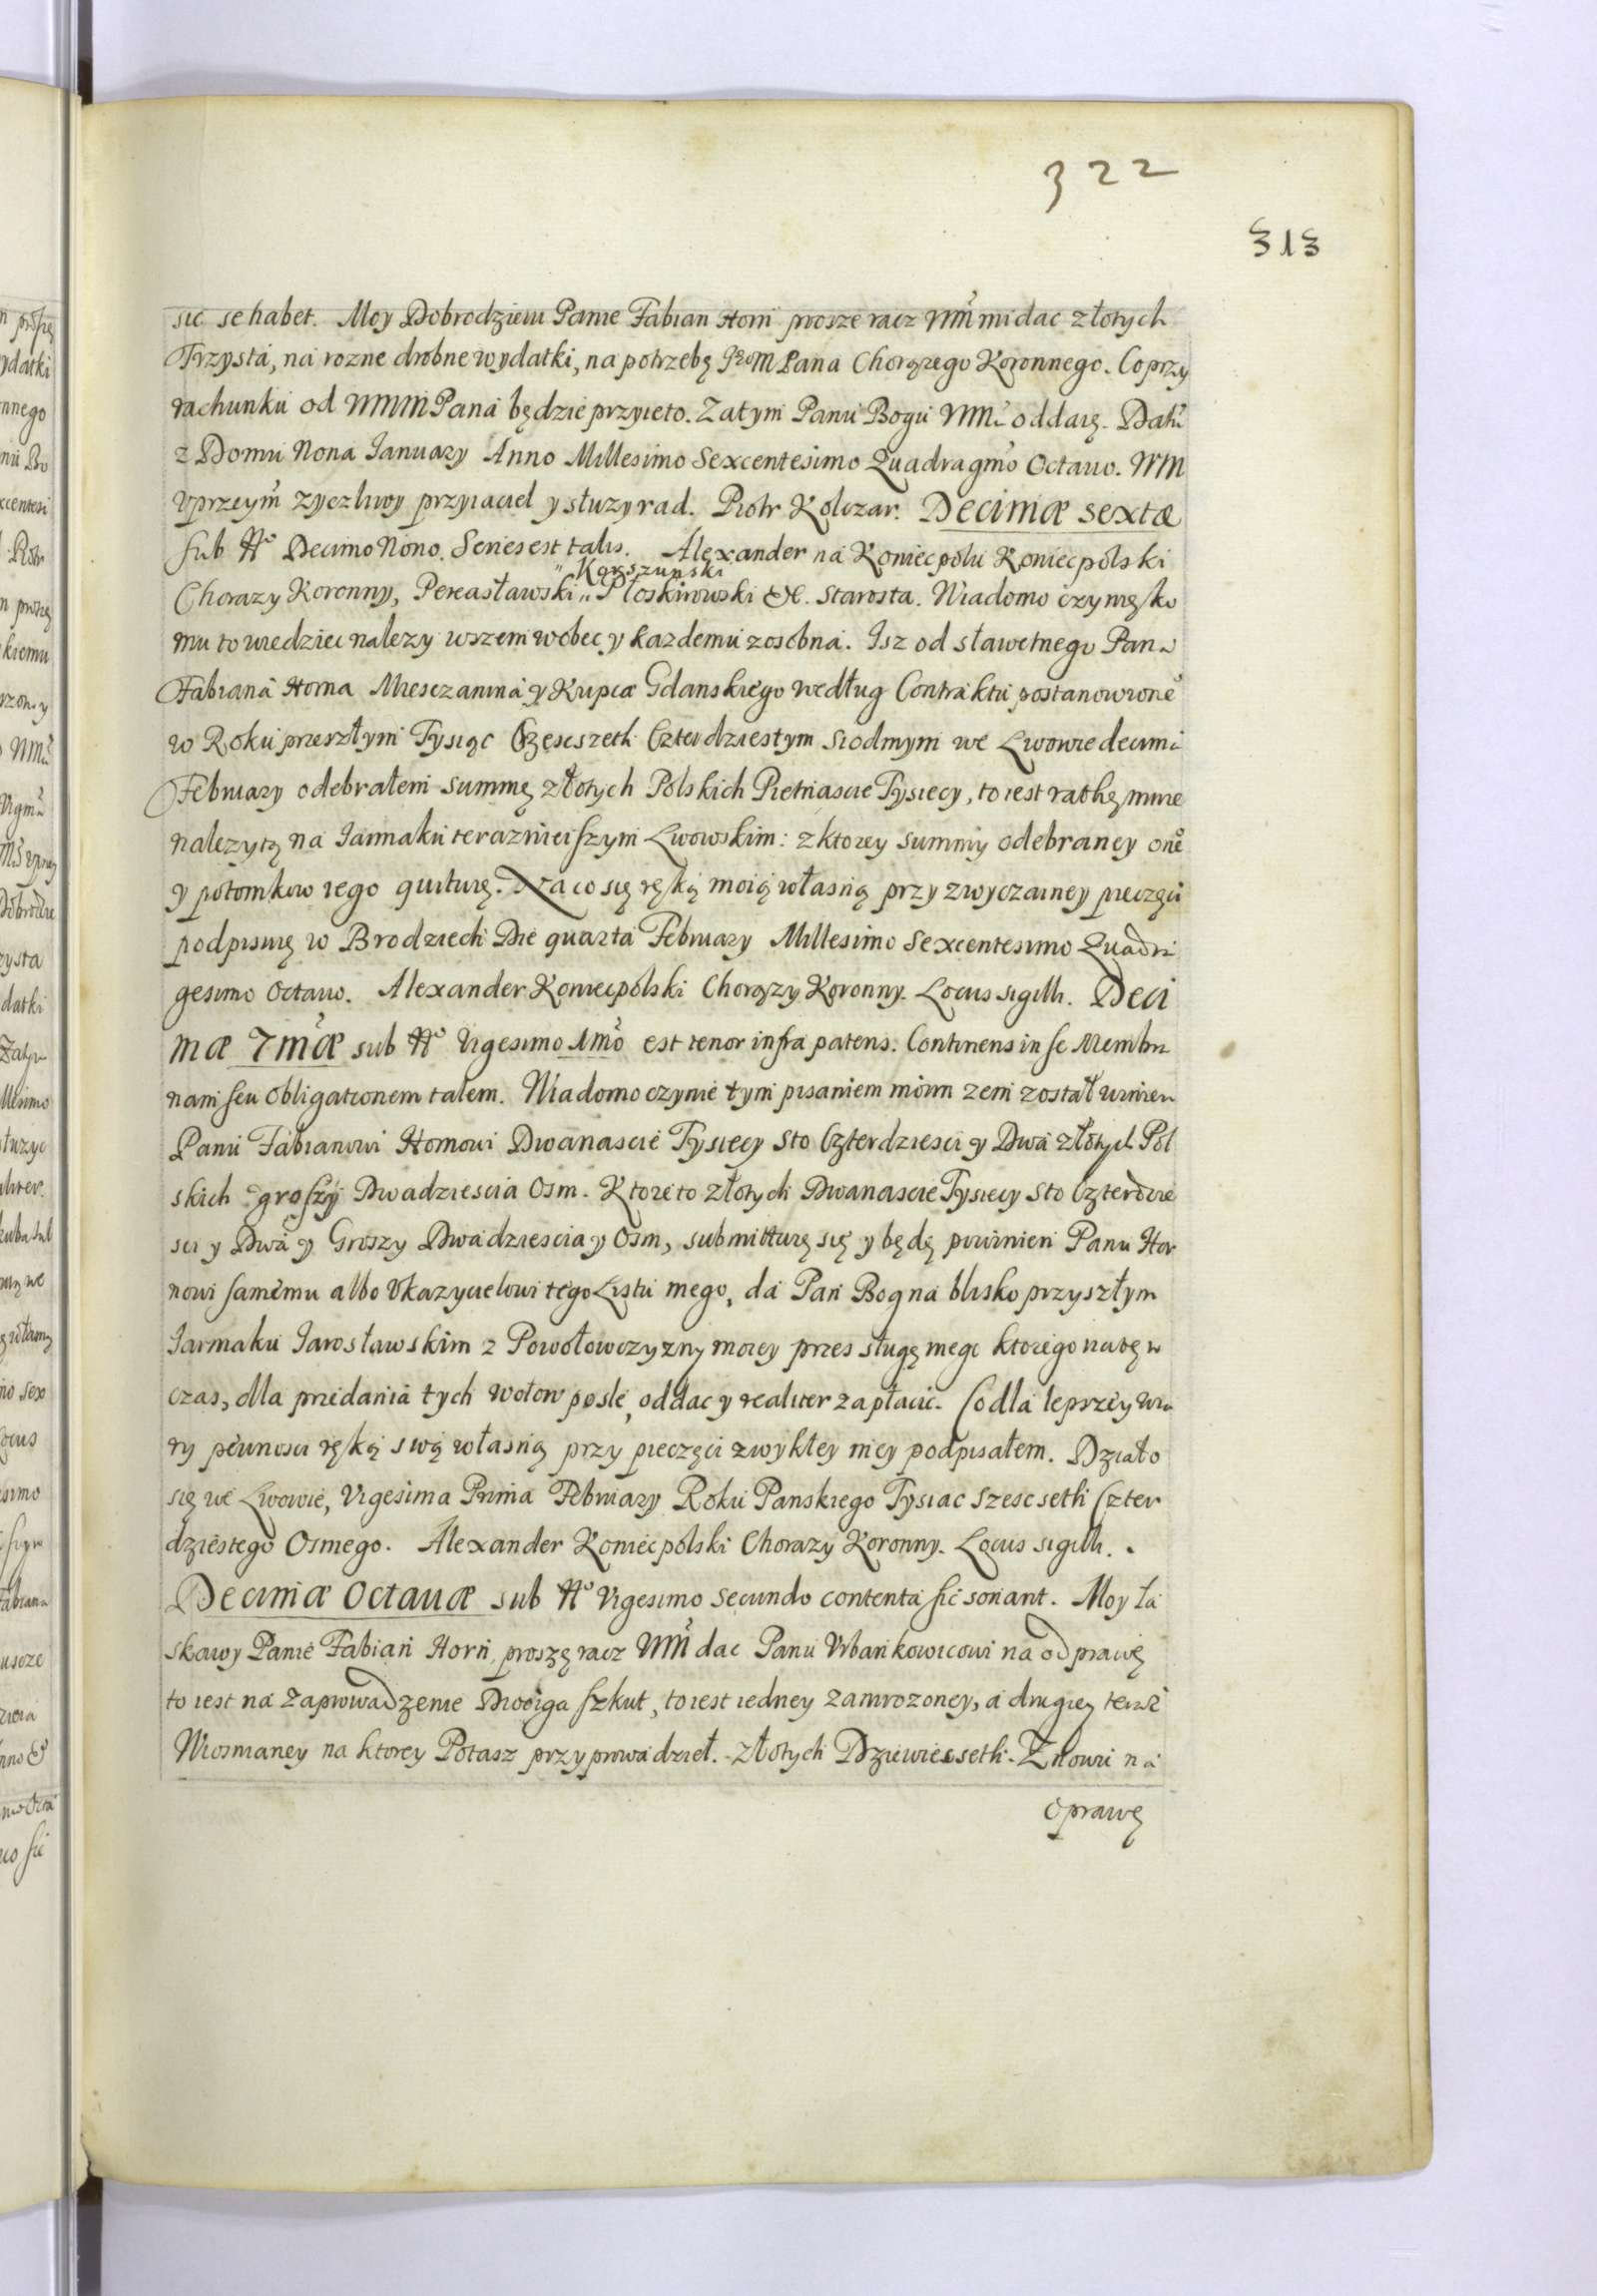 322
313
sic se habet. Moy Dobrodzieiu Panie Fabian Horn prosze racz WM mi dac złotych
Trzysta, na rozne drobne wydatki, na potrzebę JegoM Pana Chorązego Koronnego. Co przy
rachunku od WMM Pana będzie przyieto. Zatym Panu Bogu WM oddaię. Dat
z Domu Nona January Anno Millesimo Sexcentesimo Quadragmo Octauo. WM
vprzeym zyczliwy przyiaciel y słuzyc rad. Piotr Kolczar. Decimæ sextæ
sub No Decimo Nono. Series est talis. Alexander na Koniecpolu Koniecpolski
" Korszunski
Chorazy Koronny, Pereasławski " Płoskirowski &c. Starosta. Wiadomo czynię ko
mu to wiedziec nalezy wszem wobec y kazdemu zosobna. Isz od sławetnego Pana
Fabiana Horna Miesczanina y Kupca Gdanskiego według Contraktu postanowione
w Roku przeszłym Tysiąc Szescszeth Czterdziestym siodmym we Lwowie decima
February odebrałem summę złotych Polskich Pietnascie Tysiecy, to iest rathę mnie
nalezytą na Iarmaku teraznieiszym Lwowskim: z ktorey summy odebraney one
y potomkow iego quituię. Na co się ręką moią własną przy zwyczainey pieczęci
podpisuię w Brodziech Die quarta February Millesimo Sexcentesimo Quadra
gesimo Octauo. Alexander Koniecpolski Chorązy Koronny. Locus sigilli. Deci
mæ 7mæ sub No Vigesimo 1mo est tenor infra patens. Continens in se Membra
nam seu obligationem talem. Wiadomo czynie tym pisaniem moim zem został winien
Panu Fabianowi Hornowi Dwanascie Tysiecy Sto Czterdziesci y Dwa złotych Pol
skich groszy Dwadziescia Osm. Ktore to złotych Dwanascie Tysiecy Sto Czterdzie
sci y Dwa y Groszy Dwadziescia y Osm, submittuię się y będę powinien Panu Hor
nowi samemu albo Vkazycielowi tego Listu mego, da Pan Bog na blisko przyszłym
Iarmaku Iarosławskim z Powołowczyzny moiey przes sługę mego ktorego na tę w
czas, dla predania tych wołow posle, oddac y realiter zapłacic. Co dla lepszey wia
ry pewnosci ręką swą własną przy pieczęci zwykłey niey podpisałem. Działo
się we Lwowie, Vigesima Prima February Roku Panskiego Tysiac Szescseth Czter
dziestego Osmego. Alexander Koniecpolski Chorazy Koronny. Locus sigilli.
Decimæ Octauæ sub No Vigesimo secundo contenta sic sonant. Moy ła
skawy Panie Fabian Horn, proszę racz WM dac Panu Vrbankowicowi na odprawę
to iest na zaprowadzenie Dwoiga szkut, to iest iedney zamrozoney, a drugiey teraz
Wiosnianey na ktorey Potasz przyprowadzieł. złotych Dziewiecseth. Znowu na
oprawę